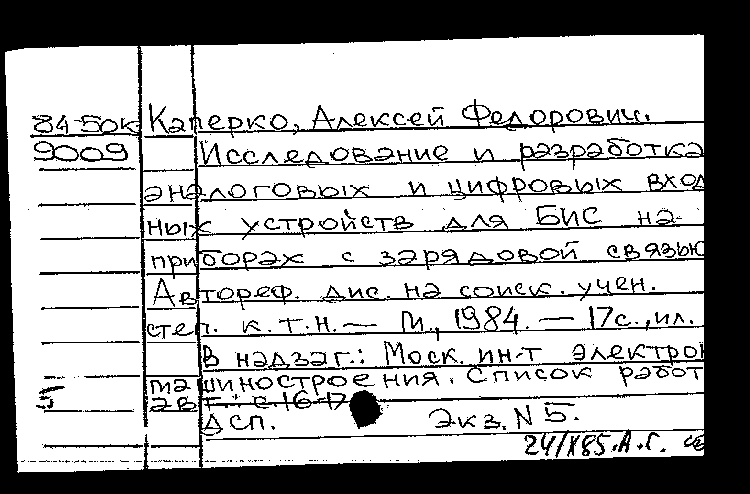 84-5ок Каперко, Алексей Федорович.
9009 Исследование и разработка
аналоговых и цифровых вход
ных устройств для БИС на
приборах с зарядовой связью
Автореф. дис. на соиск. учен.
степ. к.т.н. — М., 1984. — 17с., ил.
В надзаг.: Моск. ин-т электрон
машиностроения. Список работ
5 авт.: с. 16-17
ДСП. Экз. N 5.
24/X85. А.Г.